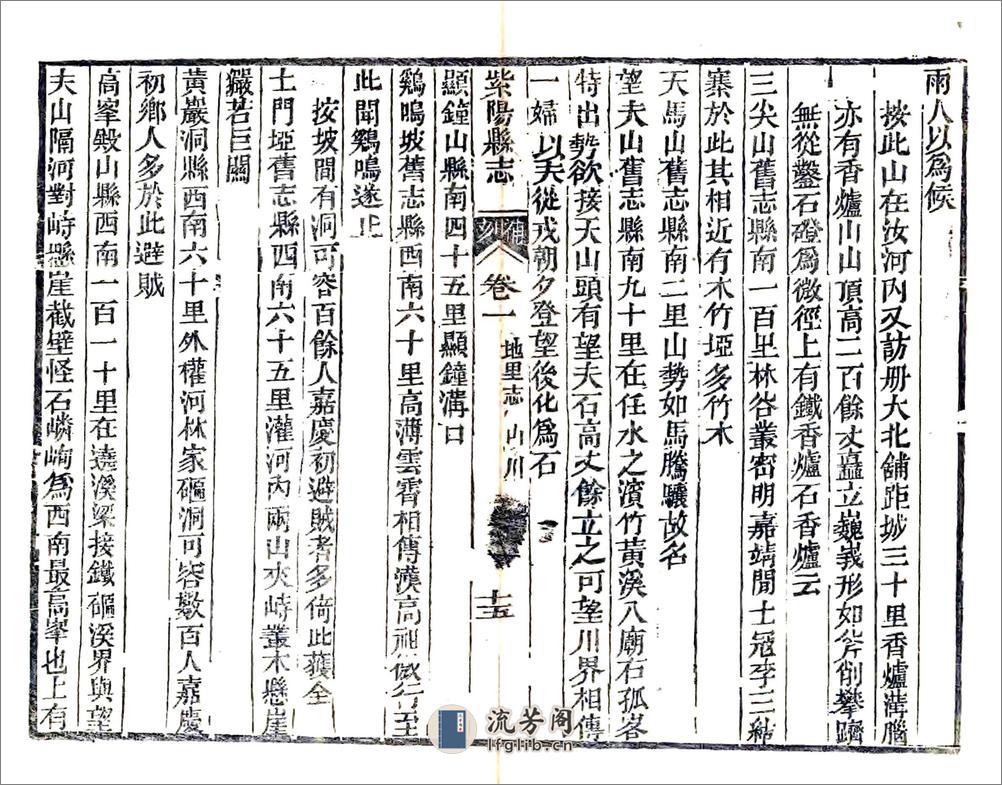 雨人以爲候
按此山在汝河內又訪册大北舖距城三十里香爐溝腦
亦有香爐山山頂高二百餘丈矗立巍峩形如斧削攀躋
無從鑿石磴爲微徑上有鐵香爐石香爐云
三尖山舊志縣南一百里林谷叢密明嘉靖間土寇李三結
寨於此其相近有木竹埡多竹木
天馬山舊志縣南二里山勢如馬騰驤故名
望夫山舊志縣南九十里在任水之濱竹黃溪八廟石孤峯
特出勢欲接天山頭有望夫石高丈餘立之可望川界相傳
一婦以夫從戎朝夕登望後化爲石
紫陽縣志 補刻 卷一 地里志 山川 十五
顯鐘山縣南四十五里顯鐘溝口
鷄鳴坡舊志縣西南六十里高薄雲霄相傳漢高祖微行至
此聞鷄鳴遂止
按坡間有洞可容百餘人嘉慶初避賊者多倚此獲全
土門埡舊志縣西南六十五里灌河內兩山夾峙叢木懸崖
儼若巨闗
黃巖洞縣西南六十里外權河林家䃰洞可容數百人嘉慶
初鄉人多於此避賊
高峯毀山縣西南一百一十里在遶溪梁接鐵䃰溪界與望
夫山隔河對峙懸崖截壁怪石嶙峋爲西南最高峯也上有
流芳阁
lfglib.cn